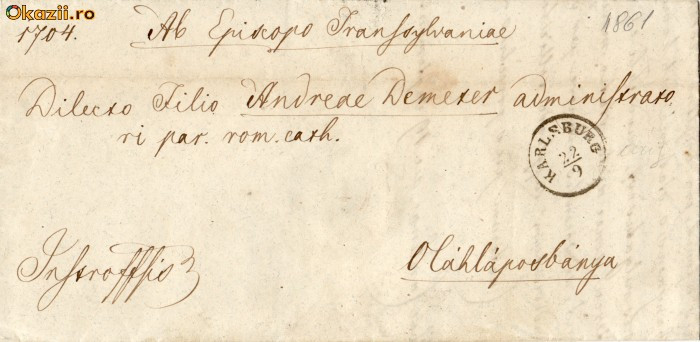 Okazii.ro
1704. Ab Episcopo Transsylvaniae 1861
Dilecto Filio Andreae Demeter administrato
ri par. rom. cath.
KARLSBURG
22/9
Oláhláposbánya